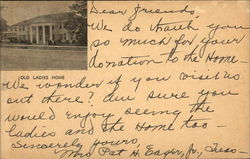 Dear friends
We do thank you
so much for your
donation to the Home—
OLD LADIES HOME
We wonder if you visit us
out there? Am sure you
would enjoy seeing the
ladies and the Home too—
Sincerely yours,
Mrs Pat H. Eager, Jr., Treas—